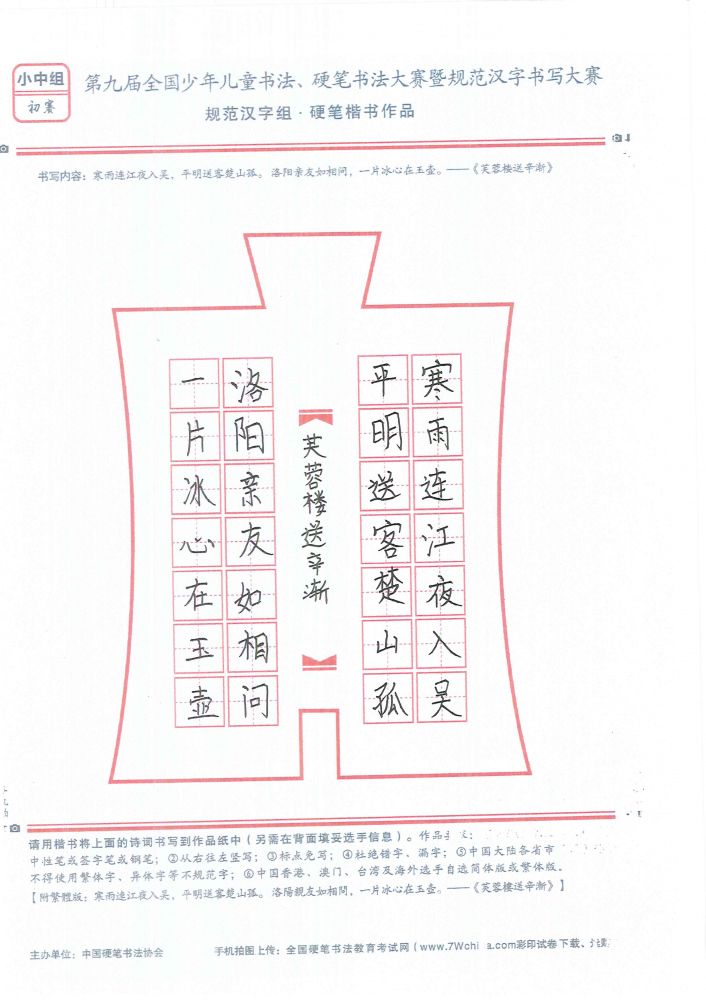 小中组
初赛
第九届全国少年儿童书法、硬笔书法大赛暨规范汉字书写大赛
规范汉字组·硬笔楷书作品
书写内容：寒雨连江夜入吴，平明送客楚山孤。洛阳亲友如相问，一片冰心在玉壶。——《芙蓉楼送辛渐》
寒雨连江夜入吴
平明送客楚山孤
芙蓉楼送辛渐
洛阳亲友如相问
一片冰心在玉壶
请用楷书将上面的诗词书写到作品纸中（另需在背面填妥选手信息）。作品
中性笔或签字笔或钢笔；②从右往左竖写；③标点免写；④杜绝错字、漏字；⑤中国大陆各省市
不得使用繁体字、异体字等不规范字；⑥中国香港、澳门、台湾及海外选手自选简体版或繁体版。
【附繁體版：寒雨連江夜入吳，平明送客楚山孤。洛陽親友如相問，一片冰心在玉壺。——《芙蓉樓送辛漸》】
主办单位：中国硬笔书法协会
手机拍图上传：全国硬笔书法教育考试网（www.7Wchi a.com彩印试卷下载、